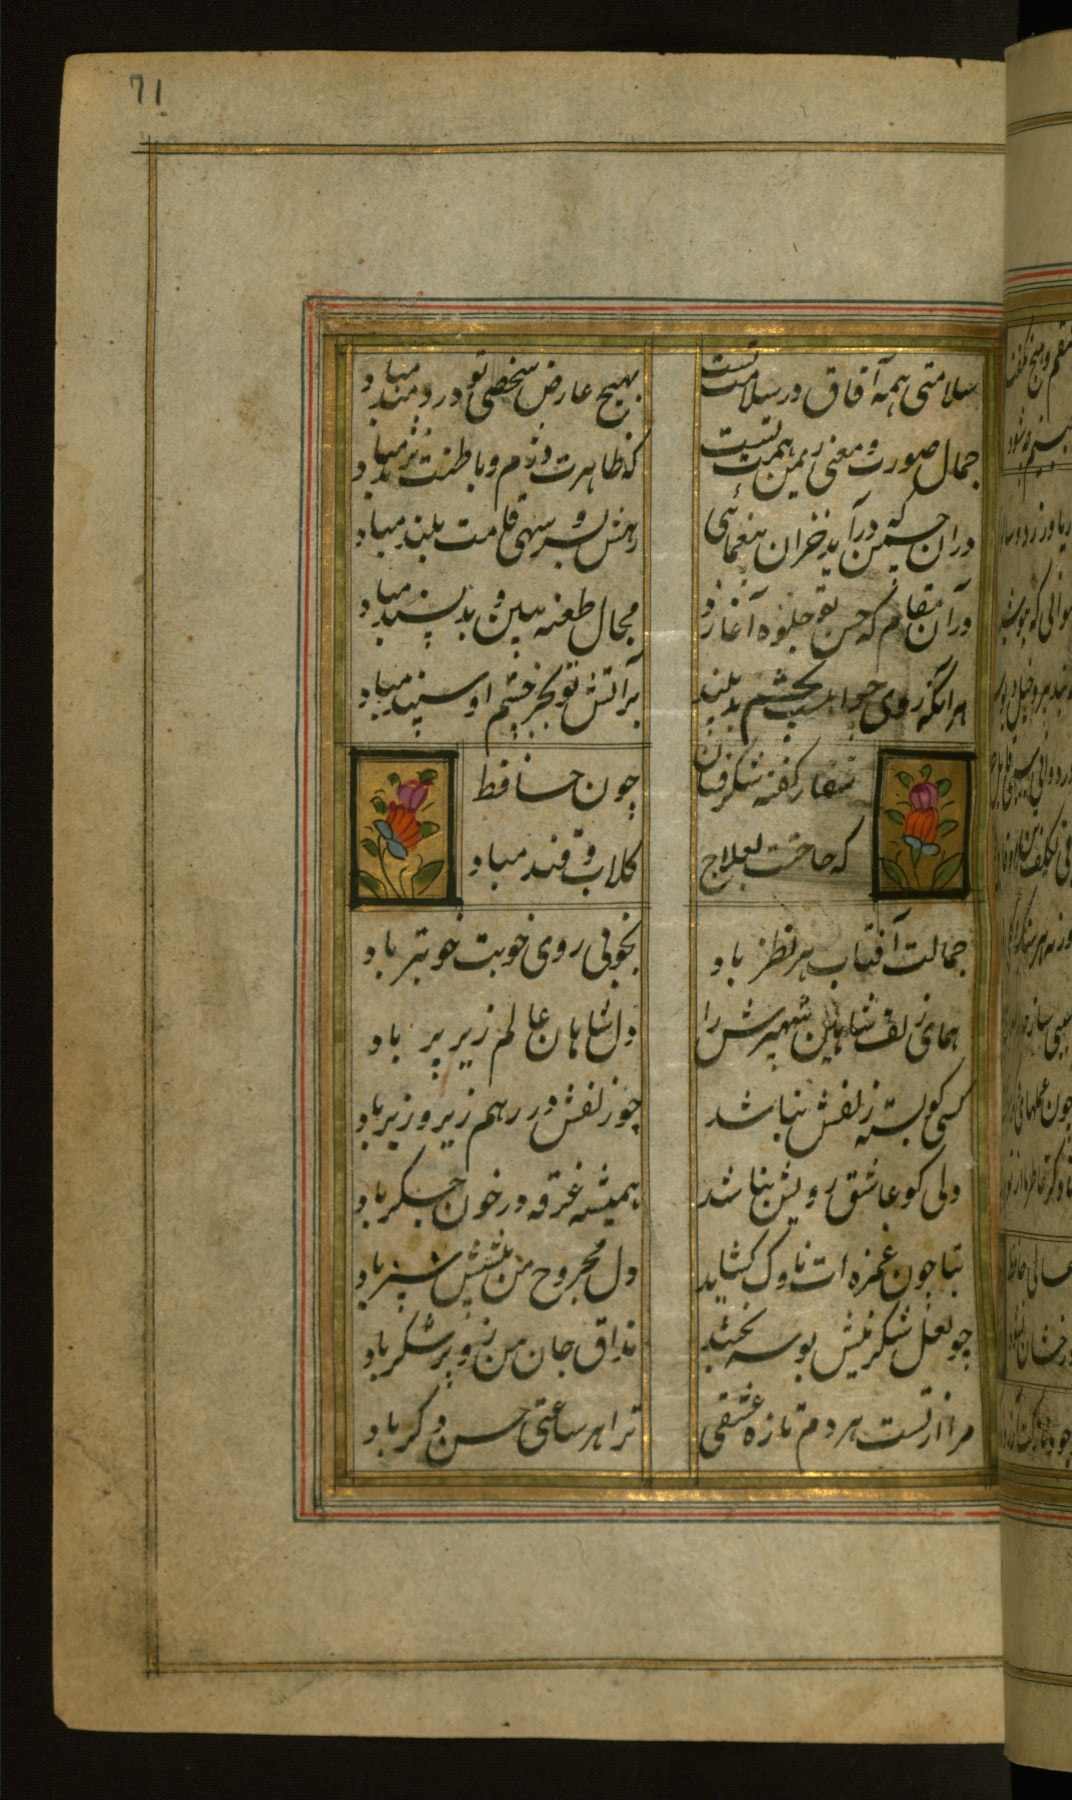 71
سلامتی همه آفاق در سلامت تست بهیچ عارض شخصی تو دردمند مباد
جمال صورت و معنی ز یمن همت تست که ظاهرت دژم و باطنت نژند مباد
دران چمن که درآید خزان بیغمائی رهش بسرو سهی قامت بلند مباد
در آن مقام که حسن تو جلوه آغازد مجال طعنه بدبین و بدپسند مباد
هر انکه روی بچشم بد بیند بر آتش تو بجز چشم او سپند مباد
شفا ز گفته شکرفشان چون حافظ
که حاجت بعلاج گلاب و قند مباد
جمالت آفتاب هر نظر باد بخوبی روی خوبت خوبتر باد
همای زلف شاهین شهپرش را دل شاهان عالم زیر پر باد
کسی کو بسته زلفش نباشد چو زلفش در رهم زیر و زبر باد
دلی کو عاشق رویش نباشد همیشه غرقه در خون جگر باد
بتا چون غمزه ات ناوک گشاید دل مجروح من پیشش سپر باد
چو لعل شکرینش بوسه بخشد مذاق جان من زو پر شکر باد
مرا از تست هر دم تازه عشقی ترا هر ساعتی حسن دگر باد